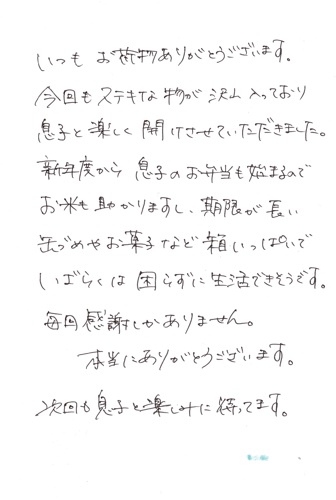 いつも お荷物ありがとうございます。
今回も ステキな物が 沢山入っており
息子と楽しく開けさせていただきました。
新年度から 息子のお弁当も始まるので
お米も助かりますし、期限が長い
缶づめやお菓子など箱いっぱいで
しばらくは 困らずに生活できそうです。
毎回感謝しかありません。
本当にありがとうございます。
次回も息子と楽しみに待ってます。